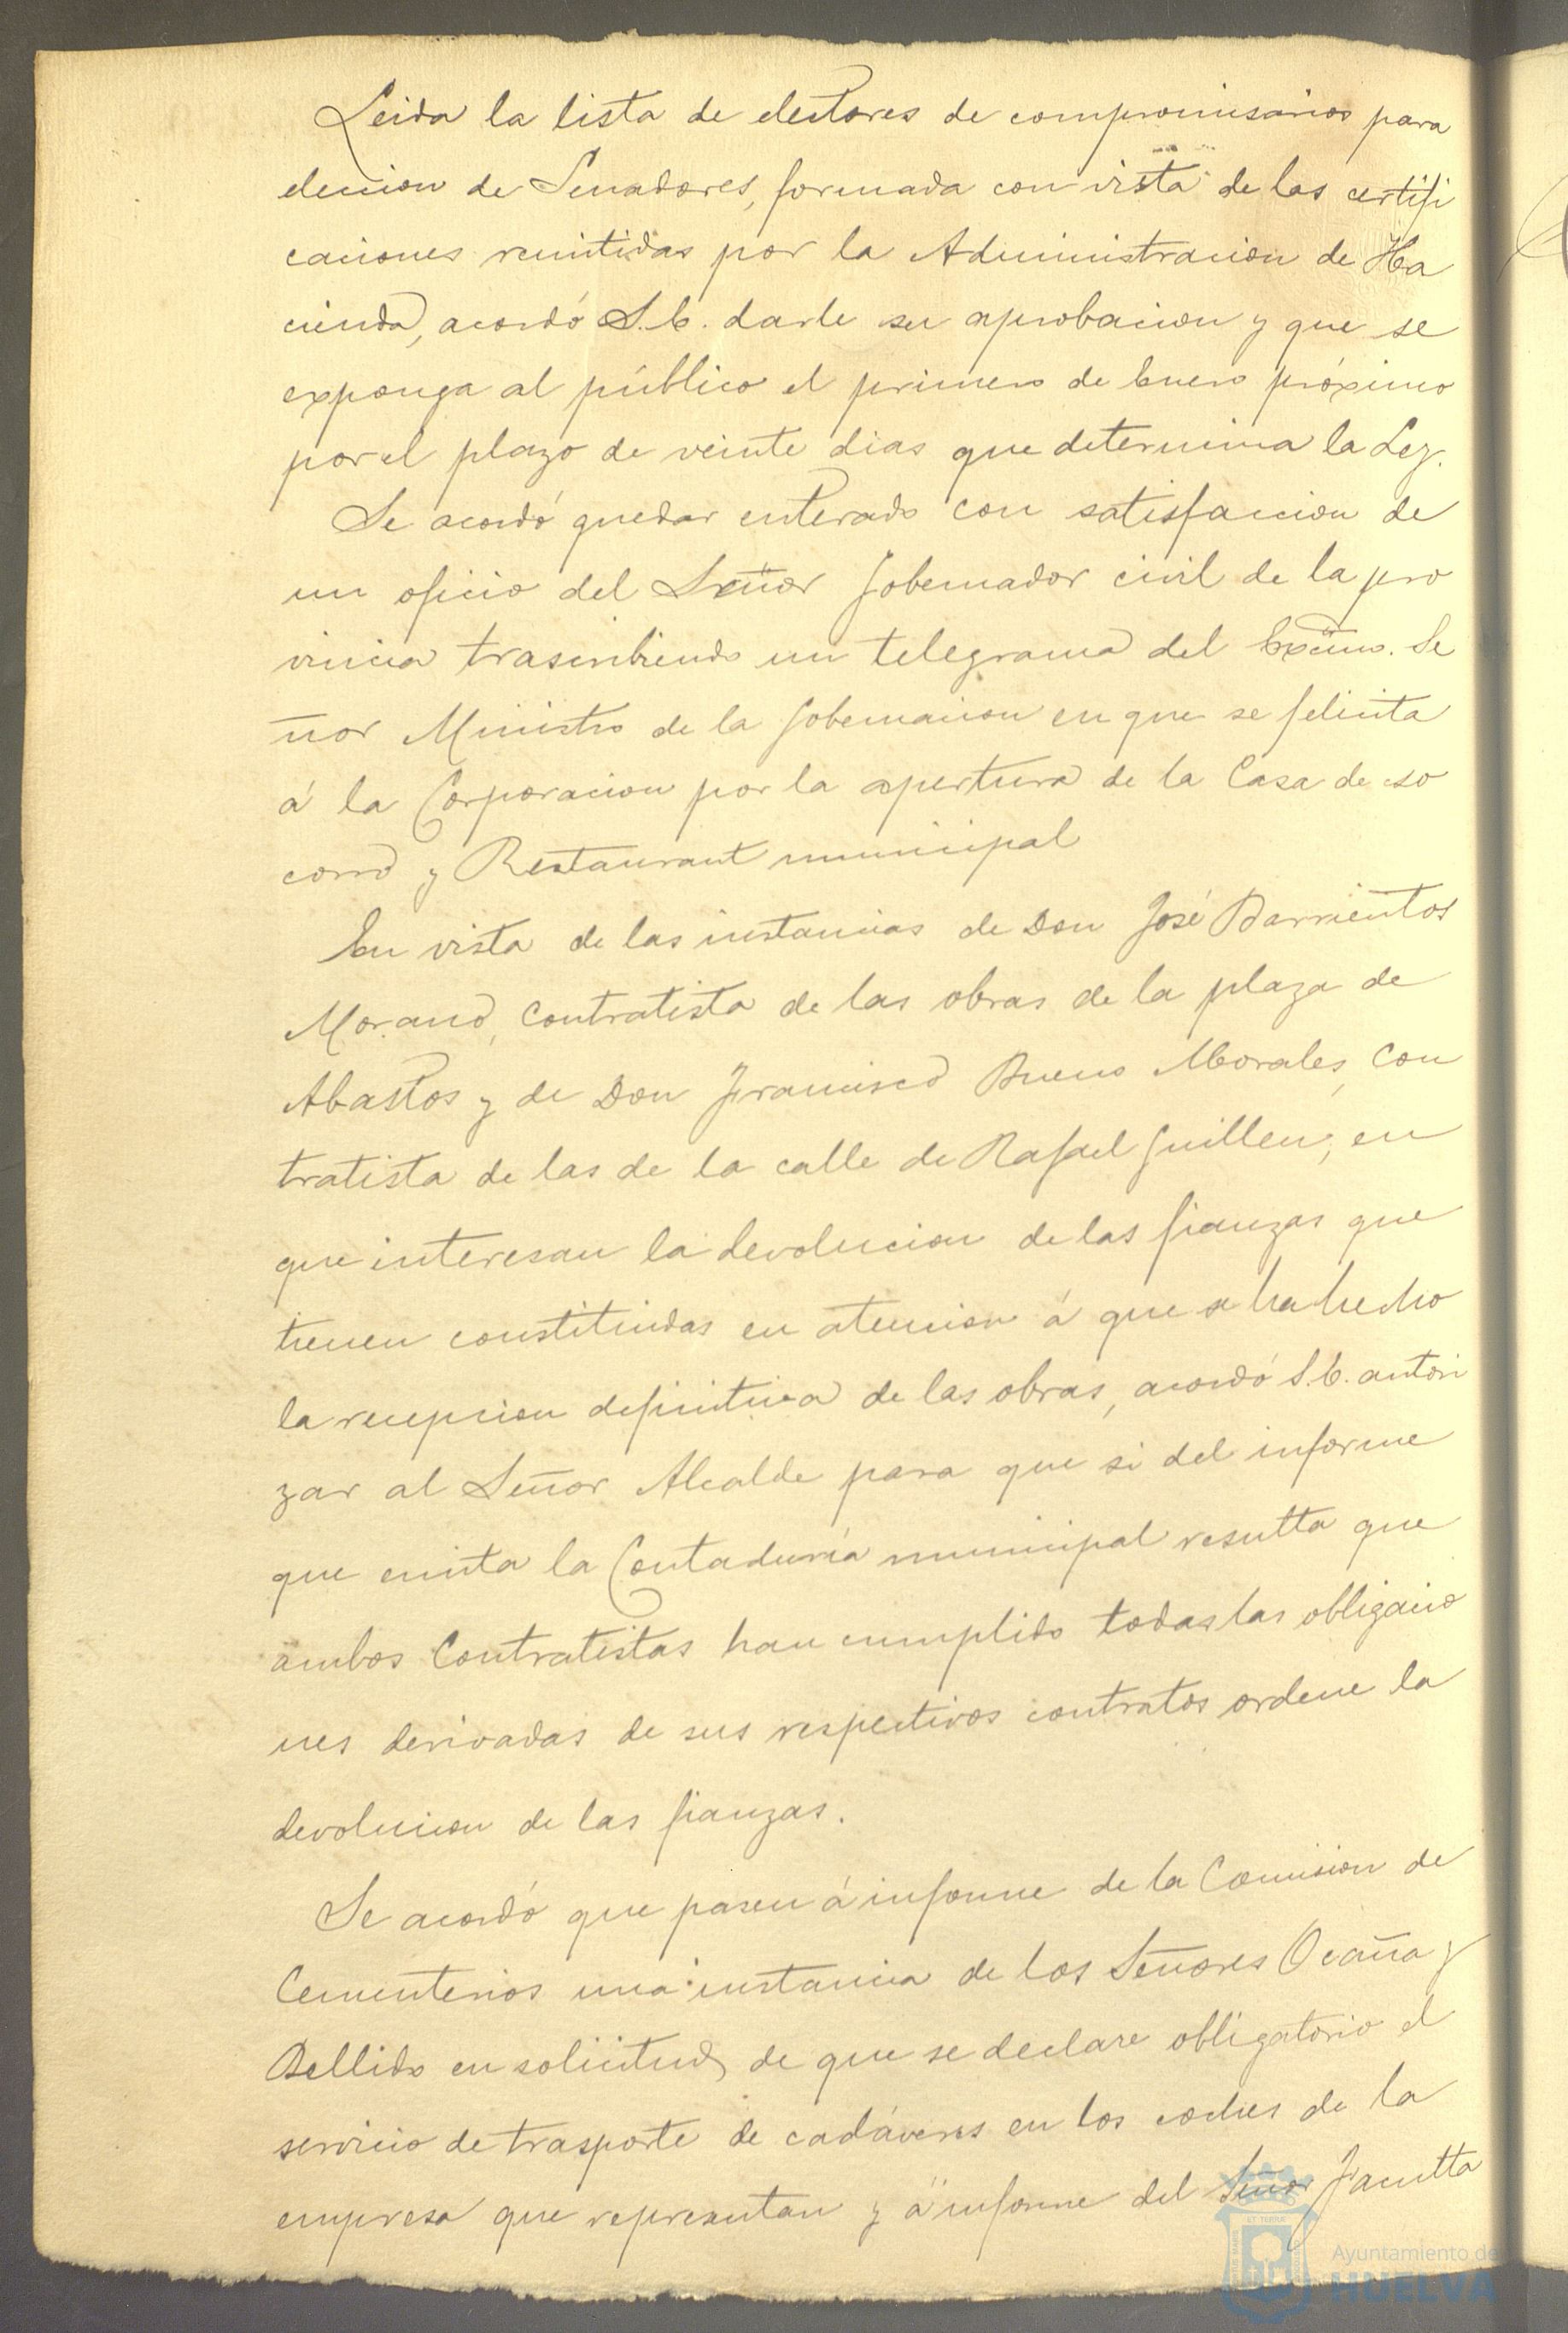 Leida la lista de electores de compromisarios para
eleccion de Senadores, formada con vista de las certifi
caciones remitidas por la Administracion de Ha
cienda, acordó S.E. darle su aprobacion y que se
exponga al público el primero de Enero próximo
por el plazo de veinte dias que determina la Ley.
Se acordó quedar enterado con satisfaccion de
un oficio del Señor Gobernador civil de la pro
vincia trascribiendo un telegrama del Excmo. Se
ñor Ministro de la Gobernacion en que se felicita
á la Corporacion por la apertura de la Casa de so
corro y Restaurant municipal
En vista de las instancias de Don José Barrientos
Morano, Contratista de las obras de la plaza de
Abastos y de Don Francisco Bueno Morales, Con
tratista de las de la calle de Rafael Guillen, en
que interesan la devolucion de las fianzas que
tienen constituidas en atencion á que se ha hecho
la recepcion definitiva de las obras, acordó S.E. autori
zar al Señor Alcalde para que si del informe
que emita la Contaduría municipal resulta que
ambos Contratistas han cumplido todas las obligacio
nes derivadas de sus respectivos contratos ordene la
devolucion de las fianzas.
Se acordó que pasen á informe de la Comision de
Cementerios una instancia de los Señores Ocaña y
Bellido en solicitud de que se declare obligatorio el
servicio de trasporte de cadáveres en los coches de la
empresa que representan y á informe del Señor Faculta
Ayuntamiento de
HUELVA